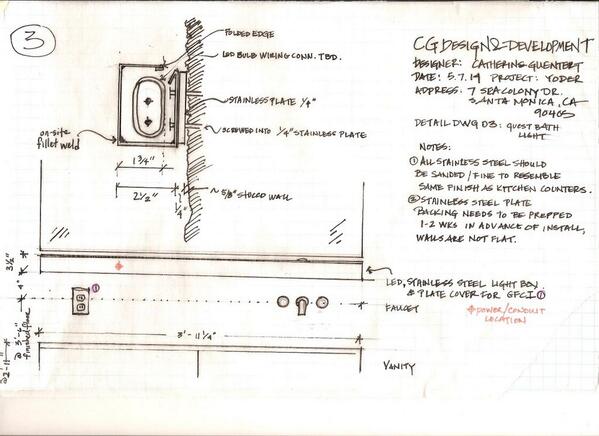 3
FOLDED EDGE
LED BULB WIRING CONN. TBD.
STAINLESS PLATE 1/4"
SCREWED INTO 1/4" STAINLESS PLATE
on-site
fillet weld
1 3/4"
2 1/2"
1/4"
5/8" STUCCO WALL
CG DESIGN & DEVELOPMENT
DESIGNER: CATHERINE GUENTERT
DATE: 5.7.19 PROJECT: YODER
ADDRESS: 7 SEA COLONY DR.
SANTA MONICA, CA
90405
DETAIL DWG 03: GUEST BATH
LIGHT
NOTES:
① ALL STAINLESS STEEL SHOULD
BE SANDED/FINE TO RESEMBLE
SAME FINISH AS KITCHEN COUNTERS.
② STAINLESS STEEL PLATE
BACKING NEEDS TO BE PREPPED
1-2 WKS IN ADVANCE OF INSTALL,
WALLS ARE NOT FLAT.
3 1/2"
4"
①
LED, STAINLESS STEEL LIGHT BOX
& PLATE COVER FOR GFCI ①
FAUCET
POWER/CONDUIT
LOCATION
3'-11 1/4"
@ 3'-6"
finished floor
@ 2'-11"
VANITY